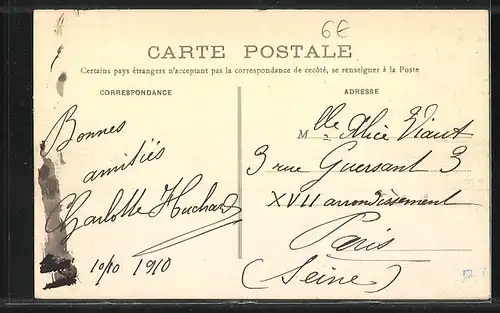 6€
CARTE POSTALE
Certains pays étrangers n'acceptant pas la correspondance de ce côté, se renseigner à la Poste
CORRESPONDANCE
Bonnes
amitiés
Charlotte Huchard
10/10 1910
ADRESSE
Mlle Alice Viaut
3 rue Guersant 3
XVII arrondissement
Paris
(Seine)